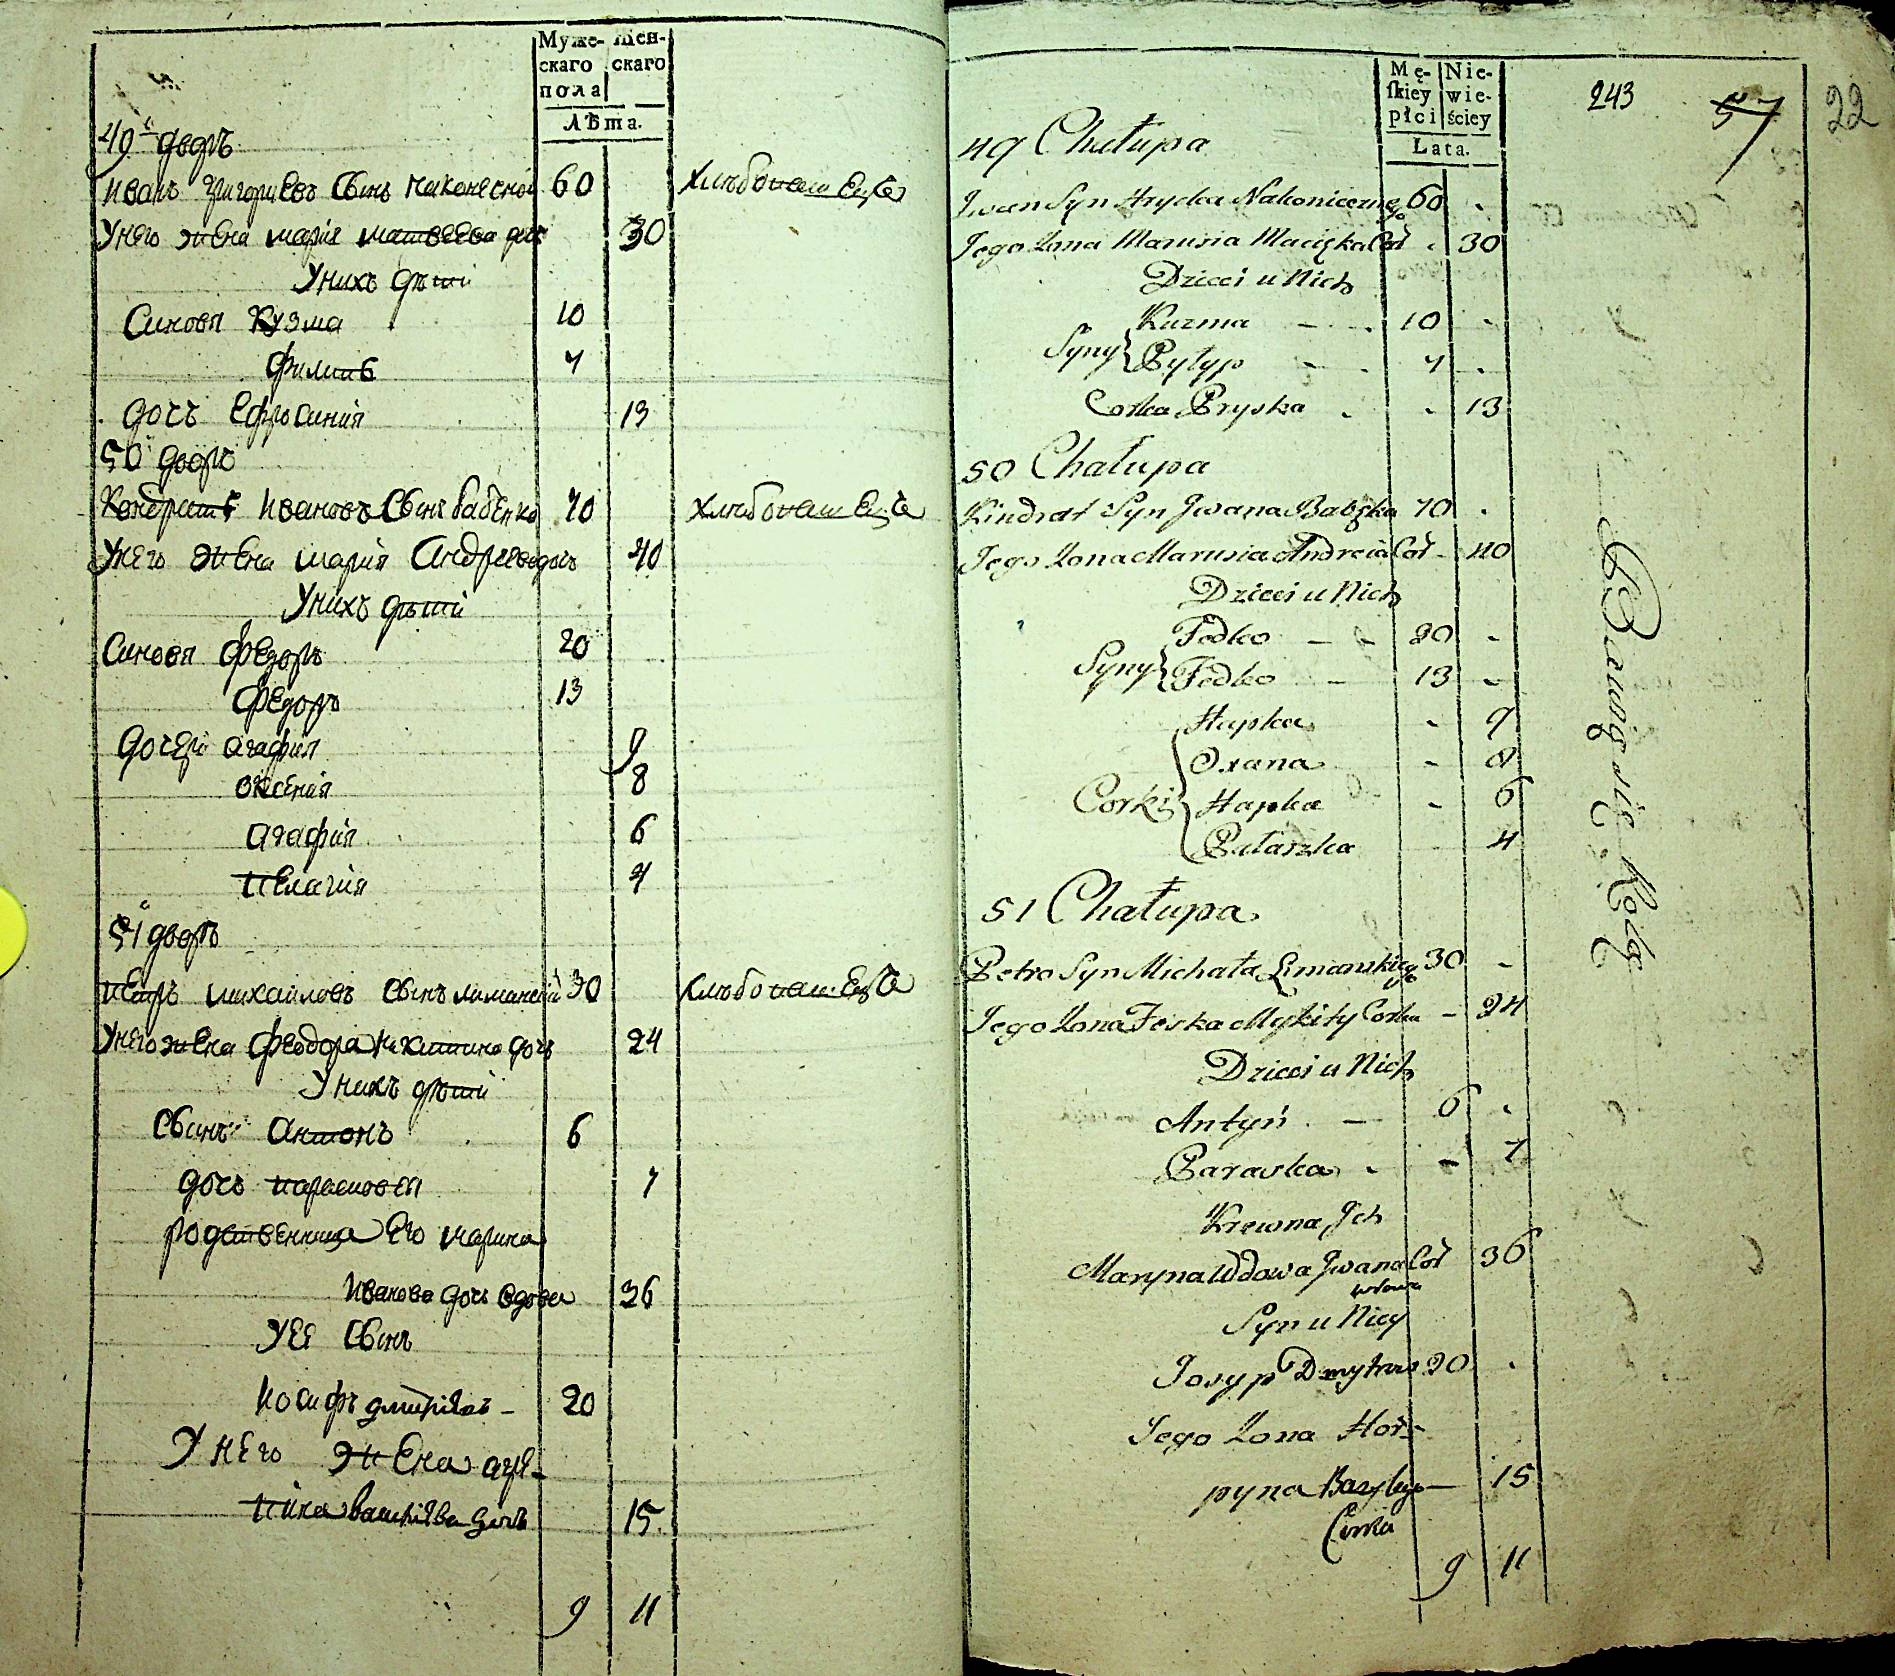 Муже- Шен-
скаго скаго
пола
Лѣта.
49й дворъ
Иванъ Григориевъ Сынъ Наконеснои 60 Хлѣбопашецъ
У него жена Мария Матвеева дочь 30
У нихъ дѣти
Синовя Кузма 10
Филипъ 7
дочъ Ефросиния 13
50й дворъ
Кондратъ Ивановъ Сынъ Бабенко 70 Хлѣбопашецъ
У него жена Мария Андреева дочь 40
У нихъ дѣти
Синовя Федоръ 20
Федоръ 13
Дочери Агафия 9
Оксения 8
Агафия 6
Пелагия 4
51й дворъ
Петръ Михаиловъ Сынъ Лиманский 30 Хлѣбопашецъ
У него жена Феодора Никитина дочь 24
У нихъ дѣти
Сынъ Антонъ 6
дочь Парасковея 7
родственница его Марина
Иванова дочь вдова 36
У ее Сынъ
Иосифъ Дмитриевъ 20
У него жена Агри-
пина Василиева дочь 15
9 11
243 57 22
Mę- Nie-
ſkiey wie-
płci ściey
Lata.
49 Chałupa
Iwan Syn Hrycka Nakonicznego 60 -
Jego Zona Marusia Macieka Cor - 30
Dzieci u Nich
Kuzma - 10 -
Syny Pyłyp - 7 -
Corka Pryska - - 13
50 Chałupa
Kindrat Syn Jwana Babęka 70 -
Jego Zona Marusia Andreia Cor - 40
Dzieci u Nich
Fedko - - 20 -
Syny Fedko - 13 -
Hapka - 9
Oxana - 8
Corki Hapka - 6
Pałaszka 4
51 Chałupa
Petro Syn Michała Limanskiego 30 -
Jego Zona Feska Mykity Corka - 24
Dzieci u Nich
Antyń - 6 -
Paraska - - 7
Krewna Jch
Maryna Wdowa Jwana Cor 36
wdowa
Syn u Niey
Josyp Dmytrow 20 -
Jego Zona Hor-
pyna Bazylego - 15
Corka
9 11